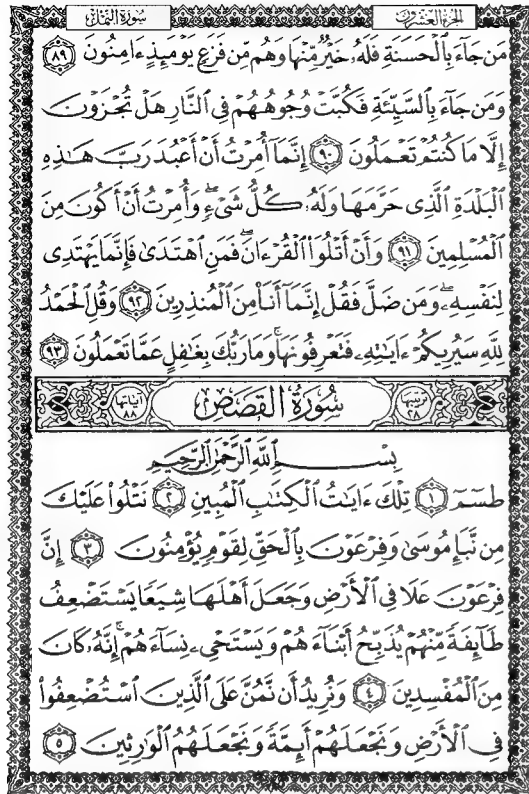 الجزء العشرون
سورة النمل
مَن جَآءَ بِٱلْحَسَنَةِ فَلَهُۥ خَيْرٌ مِّنْهَا وَهُم مِّن فَزَعٍ يَوْمَئِذٍ ءَامِنُونَ ٨٩
وَمَن جَآءَ بِٱلسَّيِّئَةِ فَكُبَّتْ وُجُوهُهُمْ فِى ٱلنَّارِ هَلْ تُجْزَوْنَ
إِلَّا مَا كُنتُمْ تَعْمَلُونَ ٩٠ إِنَّمَآ أُمِرْتُ أَنْ أَعْبُدَ رَبَّ هَٰذِهِ
ٱلْبَلْدَةِ ٱلَّذِى حَرَّمَهَا وَلَهُۥ كُلُّ شَىْءٍ ۖ وَأُمِرْتُ أَنْ أَكُونَ مِنَ
ٱلْمُسْلِمِينَ ٩١ وَأَنْ أَتْلُوَا۟ ٱلْقُرْءَانَ ۖ فَمَنِ ٱهْتَدَىٰ فَإِنَّمَا يَهْتَدِى
لِنَفْسِهِۦ ۖ وَمَن ضَلَّ فَقُلْ إِنَّمَآ أَنَا۠ مِنَ ٱلْمُنذِرِينَ ٩٢ وَقُلِ ٱلْحَمْدُ
لِلَّهِ سَيُرِيكُمْ ءَايَٰتِهِۦ فَتَعْرِفُونَهَا ۚ وَمَا رَبُّكَ بِغَٰفِلٍ عَمَّا تَعْمَلُونَ ٩٣
ترتيبها ٢٨ سُورَةُ القَصَصِ آياتها ٨٨
بِسْمِ ٱللَّهِ ٱلرَّحْمَٰنِ ٱلرَّحِيمِ
طسٓمٓ ١ تِلْكَ ءَايَٰتُ ٱلْكِتَٰبِ ٱلْمُبِينِ ٢ نَتْلُوا۟ عَلَيْكَ
مِن نَّبَإِ مُوسَىٰ وَفِرْعَوْنَ بِٱلْحَقِّ لِقَوْمٍ يُؤْمِنُونَ ٣ إِنَّ
فِرْعَوْنَ عَلَا فِى ٱلْأَرْضِ وَجَعَلَ أَهْلَهَا شِيَعًا يَسْتَضْعِفُ
طَآئِفَةً مِّنْهُمْ يُذَبِّحُ أَبْنَآءَهُمْ وَيَسْتَحْىِۦ نِسَآءَهُمْ ۚ إِنَّهُۥ كَانَ
مِنَ ٱلْمُفْسِدِينَ ٤ وَنُرِيدُ أَن نَّمُنَّ عَلَى ٱلَّذِينَ ٱسْتُضْعِفُوا۟
فِى ٱلْأَرْضِ وَنَجْعَلَهُمْ أَئِمَّةً وَنَجْعَلَهُمُ ٱلْوَٰرِثِينَ ٥